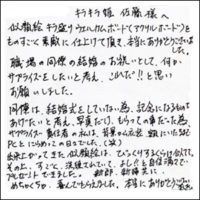 キラキラ姫 佐藤 様へ
似顔絵 キラ盛り ウェルカムボード(アクリルボード)を
ものすごく素敵に仕上げて頂き、本当にありがとうございま
した。
職場の同僚の結婚のお祝いとして、何か
サプライズをしたいと考え、「これだ!!」と思い
お願いしました。
同僚は結婚式をしていない為、記念になるものは
あげたいと考え、写真だけ、もらっての事だった為
サプライズ責任者の私は、
PCとにらめっこの日々でした。(涙)
出来上がってきた似顔絵は、びっくりするくらい似てて、
その上、すごく洗練されていて、よし!!と自信満々で
プレゼントできました。新郎、新婦共に、
めちゃくちゃ、喜んでもらえました。本当にありがとうござい